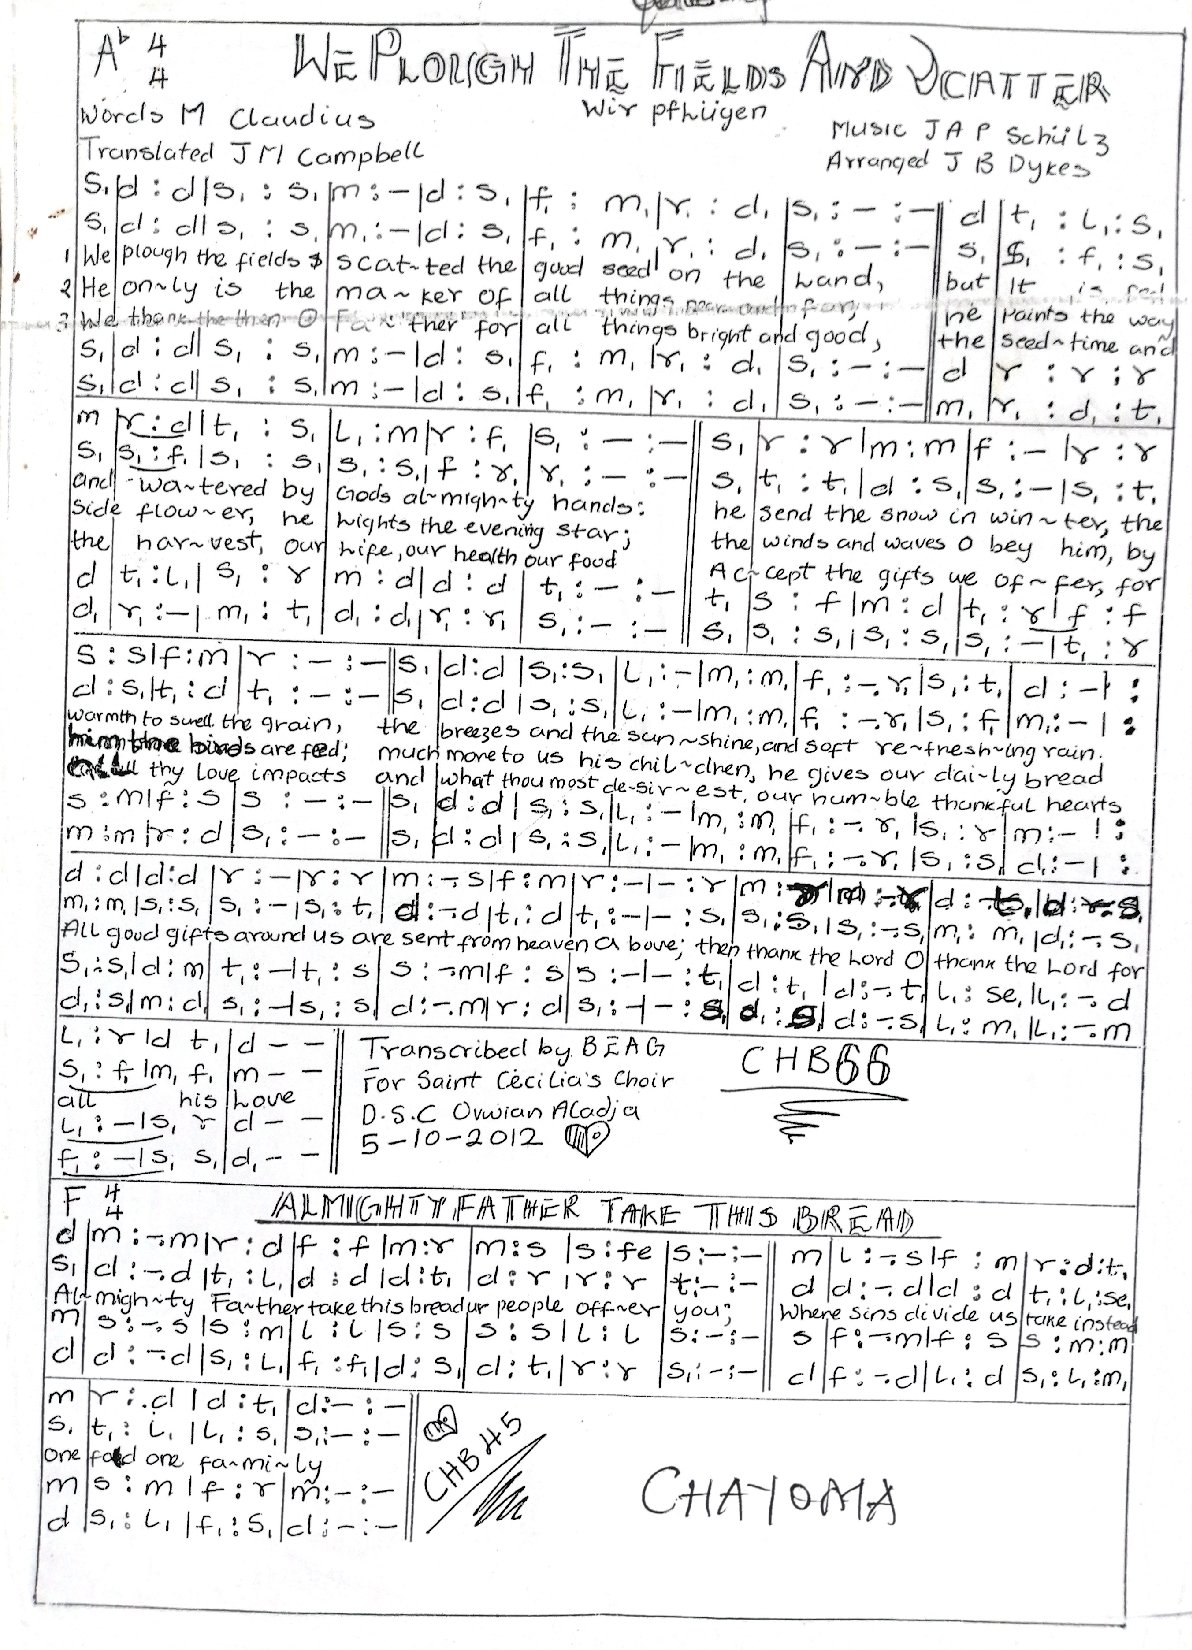 A♭ 4/4
WE PLOUGH THE FIELDS AND SCATTER
Wir pflügen
Words M Claudius
Translated J M Campbell
Music J A P Schülz
Arranged J B Dykes
S₁|d : d|s₁ : s₁|m : –|d : s₁|f₁ : m₁|r₁ : d₁|s₁ : – : –|| d|t₁ : l₁ : s₁
s₁|d : d|s₁ : s₁|m₁ : –|d : s₁|f₁ : m₁|r₁ : d₁|s₁ : – : –|| s₁|s₁ : f₁ : s₁
1 We plough the fields & scat~ted the good seed on the land, but It is
2 He on~ly is the ma~ker of all things near and far, he paints the way
3 We thank the then O Fa~ther for all things bright and good, the seed~time and
s₁|d : d|s₁ : s₁|m : –|d : s₁|f₁ : m₁|r₁ : d₁|s₁ : – : –|| d|r : r : r
s₁|d : d|s₁ : s₁|m : –|d : s₁|f₁ : m₁|r₁ : d₁|s₁ : – : –|| m₁|r₁ : d₁ : t₁
m|r : d|t₁ : s₁|L₁ : m|r : f₁|s₁ : – : –|| s₁|r : r|m : m|f : –|r : r
s₁|s₁ : f₁|s₁ : s₁|s₁ : s₁|f : r₁|r₁ : – : –|| s₁|t₁ : t₁|d : s₁|s₁ : –|s₁ : t₁
and wa~tered by Gods al~migh~ty hands: he send the snow in win~ter, the
side flow~er, he lights the evening star; the winds and waves O bey him, by
the har~vest, our life, our health our food Ac~cept the gifts we of~fer, for
d|t₁ : L₁|s₁ : r|m : d|d : d|t₁ : – : –|| t₁|s : f|m : d|t₁ : r|f : f
d₁|r₁ : –|m₁ : t₁|d₁ : d₁|r₁ : r₁|s₁ : – : –|| s₁|s₁ : s₁|s₁ : s₁|s₁ : –|t₁ : r
s : s|f : m|r : – : –||s₁|d : d|s₁ : s₁|L₁ : –|m₁ : m₁|f₁ : –. r₁|s₁ : t₁|d : –| :
d : s₁|t₁ : d|t₁ : – : –||s₁|d : d|s₁ : s₁|L₁ : –|m₁ : m₁|f₁ : –. r₁|s₁ : f₁|m₁ : –| :
warmth to swell the grain, the breezes and the sun~shine, and soft re~fresh~ing rain.
him the birds are fed; much more to us his chil~dren, he gives our dai~ly bread
all thy love impacts and what thou most de~sir~est, our hum~ble thankful hearts
s : m|f : s|s : – : –||s₁|d : d|s₁ : s₁|L₁ : –|m₁ : m₁|f₁ : –. r₁|s₁ : r|m : –| :
m : m|r : d|s₁ : – : –||s₁|d : d|s₁ : s₁|L₁ : –|m₁ : m₁|f₁ : –. r₁|s₁ : s₁|d₁ : –| :
d : d|d : d|r : –|r : r|m : –. s|f : m|r : –|– : r|m : r|m : –. r|d : t₁|d : r. s₁
m₁ : m₁|s₁ : s₁|s₁ : –|s₁ : t₁|d : –. d|t₁ : d|t₁ : –|– : s₁|s₁ : s₁|s₁ : –. s₁|m₁ : m₁|d₁ : –. s₁
All good gifts around us are sent from heaven a bove; then thank the Lord O thank the Lord for
s₁ : s₁|d : m|t₁ : –|t₁ : s|s : –. m|f : s|s : –|– : t₁|d : t₁|d : –. t₁|L₁ : se₁|L₁ : –. d
d₁ : s₁|m : d₁|s₁ : –|s₁ : s|d : –. m|r : d|s₁ : –|– : s₁|d₁ : s₁|d : –. s₁|L₁ : m₁|L₁ : –. m
L₁ : r|d t₁|d – –
s₁ : f₁|m₁ f₁|m – –
all his Love
L₁ : –|s₁ r|d – –
f₁ : –|s₁ s₁|d₁ – –
Transcribed by BEAG
For Saint Cecilia's Choir
D.S.C Ovwian Aladja
5–10–2012
CHB66
F 4/4
ALMIGHTY FATHER TAKE THIS BREAD
d|m : –. m|r : d|f : f|m : r|m : s|s : fe|s : – : –|| m|L : –. s|f : m|r : d : t₁
s₁|d : –. d|t₁ : L₁|d : d|d : t₁|d : r|r : r|t : – : –|| d|d : –. d|d : d|t₁ : L₁ : se₁
Al~migh~ty Fa~ther take this bread ur people off~er you; Where sins divide us take instead
m|s : –. s|s : m|L : L|s : s|s : s|L : L|s : – : –|| s|f : –. m|f : s|s : m : m
d|d : –. d|s₁ : L₁|f₁ : f₁|d : s₁|d : t₁|r : r|s₁ : – : –|| d|f : –. d|L₁ : d|s₁ : L₁ : m₁
m|r : . d|d : t₁|d : – : –
s₁|t₁ : L₁|L₁ : s₁|s₁ : – : –
one fold one fa~mi~ly
m|s : m|f : r|m : – : –
d|s₁ : L₁|f₁ : s₁|d : – : –
CHB 45
CHAYOMA